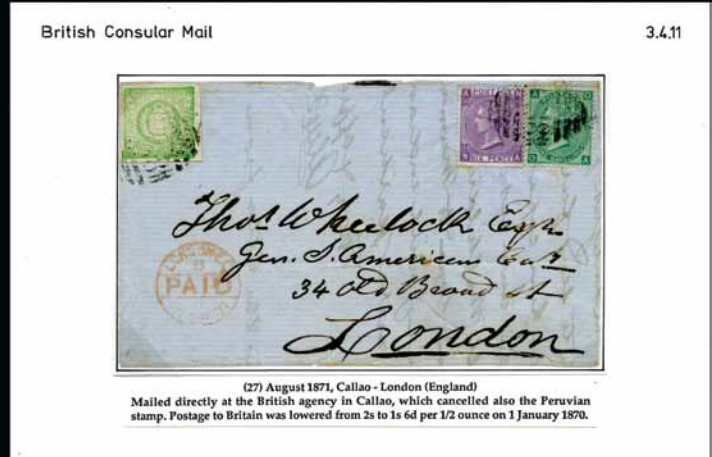 British Consular Mail
3.4.11
POSTAGE
SIX PENCE
Thos Wheelock Esqre
Gen. S. American
34 Old Broad st
London
LONDON
PAID
(27) August 1871, Callao - London (England)
Mailed directly at the British agency in Callao, which cancelled also the Peruvian
stamp. Postage to Britain was lowered from 2s to 1s 6d per 1/2 ounce on 1 January 1870.